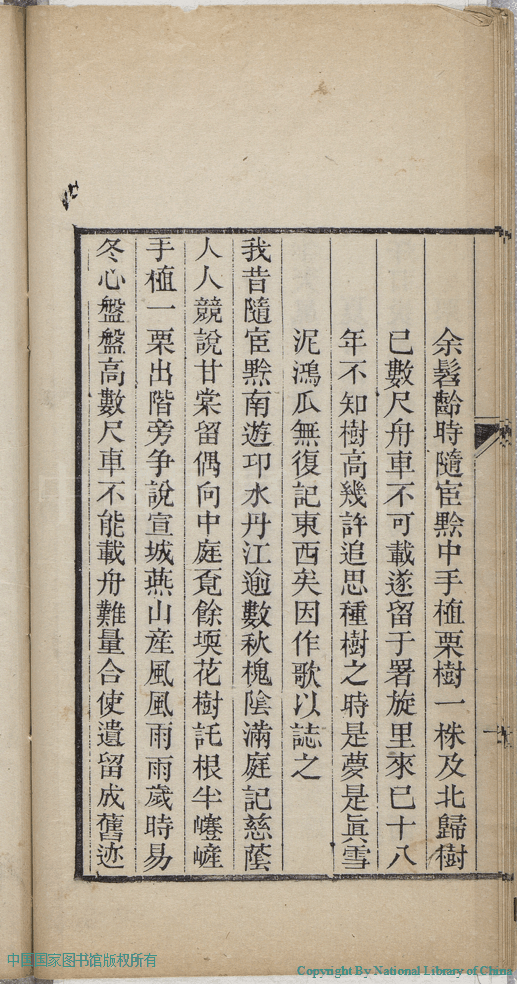 余髫齡時隨宦黔中手植栗樹一株及北歸樹
已數尺舟車不可載遂留于署旋里來已十八
年不知樹高幾許追思種樹之時是夢是眞雪
泥鴻瓜無復記東西矣因作歌以誌之
我昔隨宦黔南遊卭水丹江逾數秋槐陰滿庭記慈蔭
人人競說甘棠留偶向中庭覔餘堧花樹託根半㠢嵼
手植一栗出階旁争說宣城燕山産風風雨雨歲時易
冬心盤盤高數尺車不能載舟難量合使遺留成舊迹
中国国家图书馆版权所有
Copyright By National Library of China